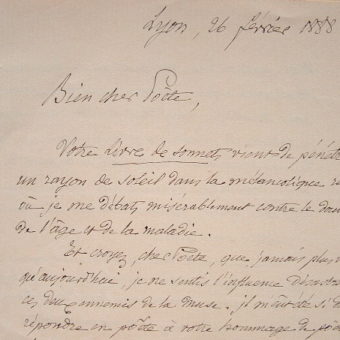 Lyon, 26 février 1888
Bien cher Poète,
Votre Livre de sonnets vient de pénét
un rayon de soleil dans la mélancolique r
où je me débats misérablement contre le dou
de l'âge et de la maladie.
Et croyez, cher Poète, que jamais plus
qu'aujourd'hui, je ne sentis l'influence désastr
ces deux ennemis de la muse. Il m'eût été si d
répondre en poète à votre hommage de po